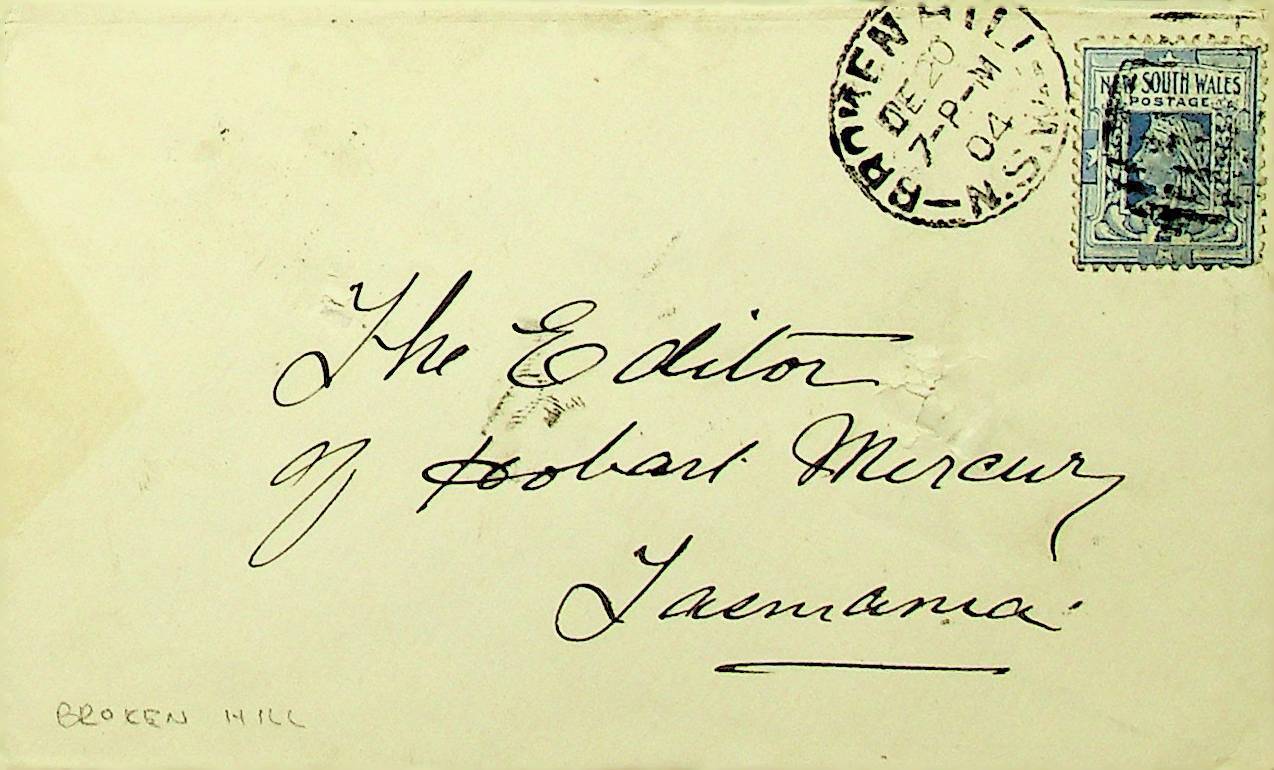 BROKEN HILL N.S.W
DE 20
7-P-M
04
NEW SOUTH WALES
POSTAGE
The Editor
of Hobart Mercury
Tasmania
BROKEN HILL